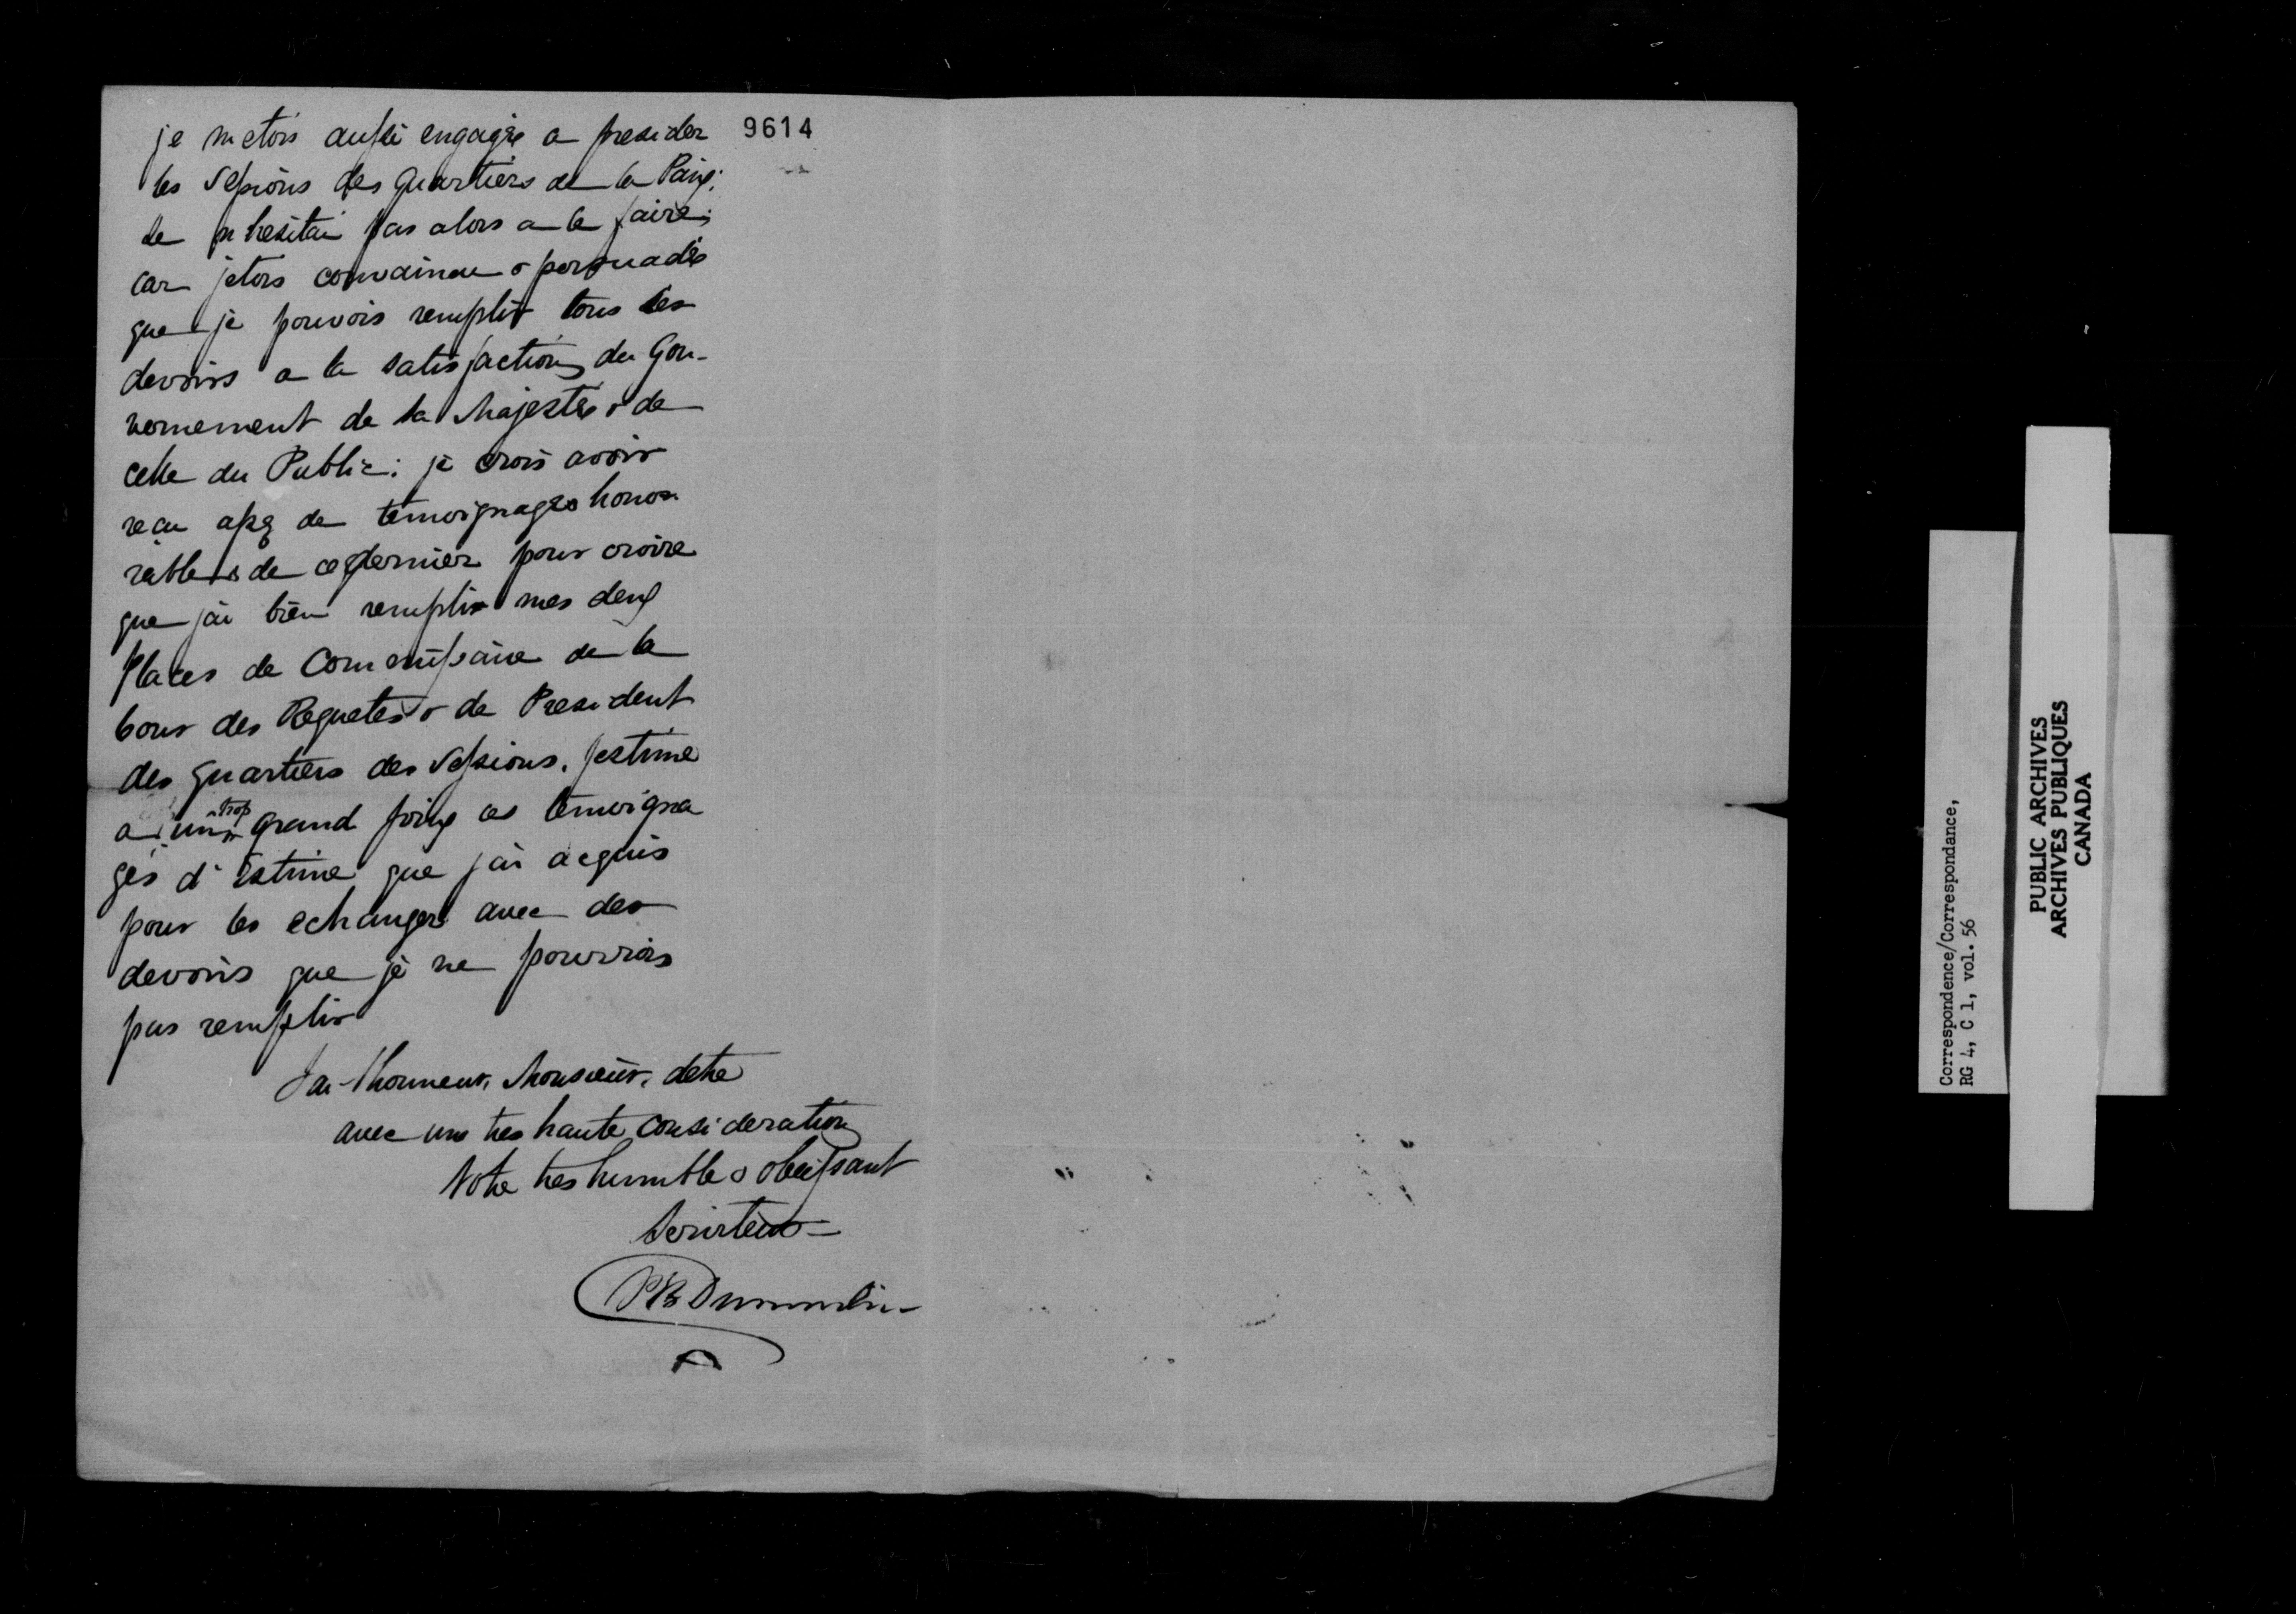 9614
je metois aussi engagée a presider
les sessions des quartiers de la Paix;
Je n hesitai pas alors a le faire;
car jetois convaincu & persuadée
que je pouvois remplir tous les
devoirs a la satisfaction du Gou-
vernement de sa Majestée & de
celle du Public: je crois avoir
recu assez de temoignages hono-
rables de ce dernier pour croire
que jai bien remplir mes deux
places de Commissaire de la
Cour des Requetes & de President
des quartiers des Sessions. Jestime
a un trop grand poing ces temoigna
ges d'Estime que jai acquis
pour les echanger avec des
devoirs que je ne pourrois
pas remplir
Jai lhonneur, Monsieur, detre
avec une tres haute consideration
Votre tres humble & obeissant
Serviteur
PB Dumoulin
Correspondence/Correspondance,
RG 4, C 1, vol. 56
PUBLIC ARCHIVES
ARCHIVES PUBLIQUES
CANADA